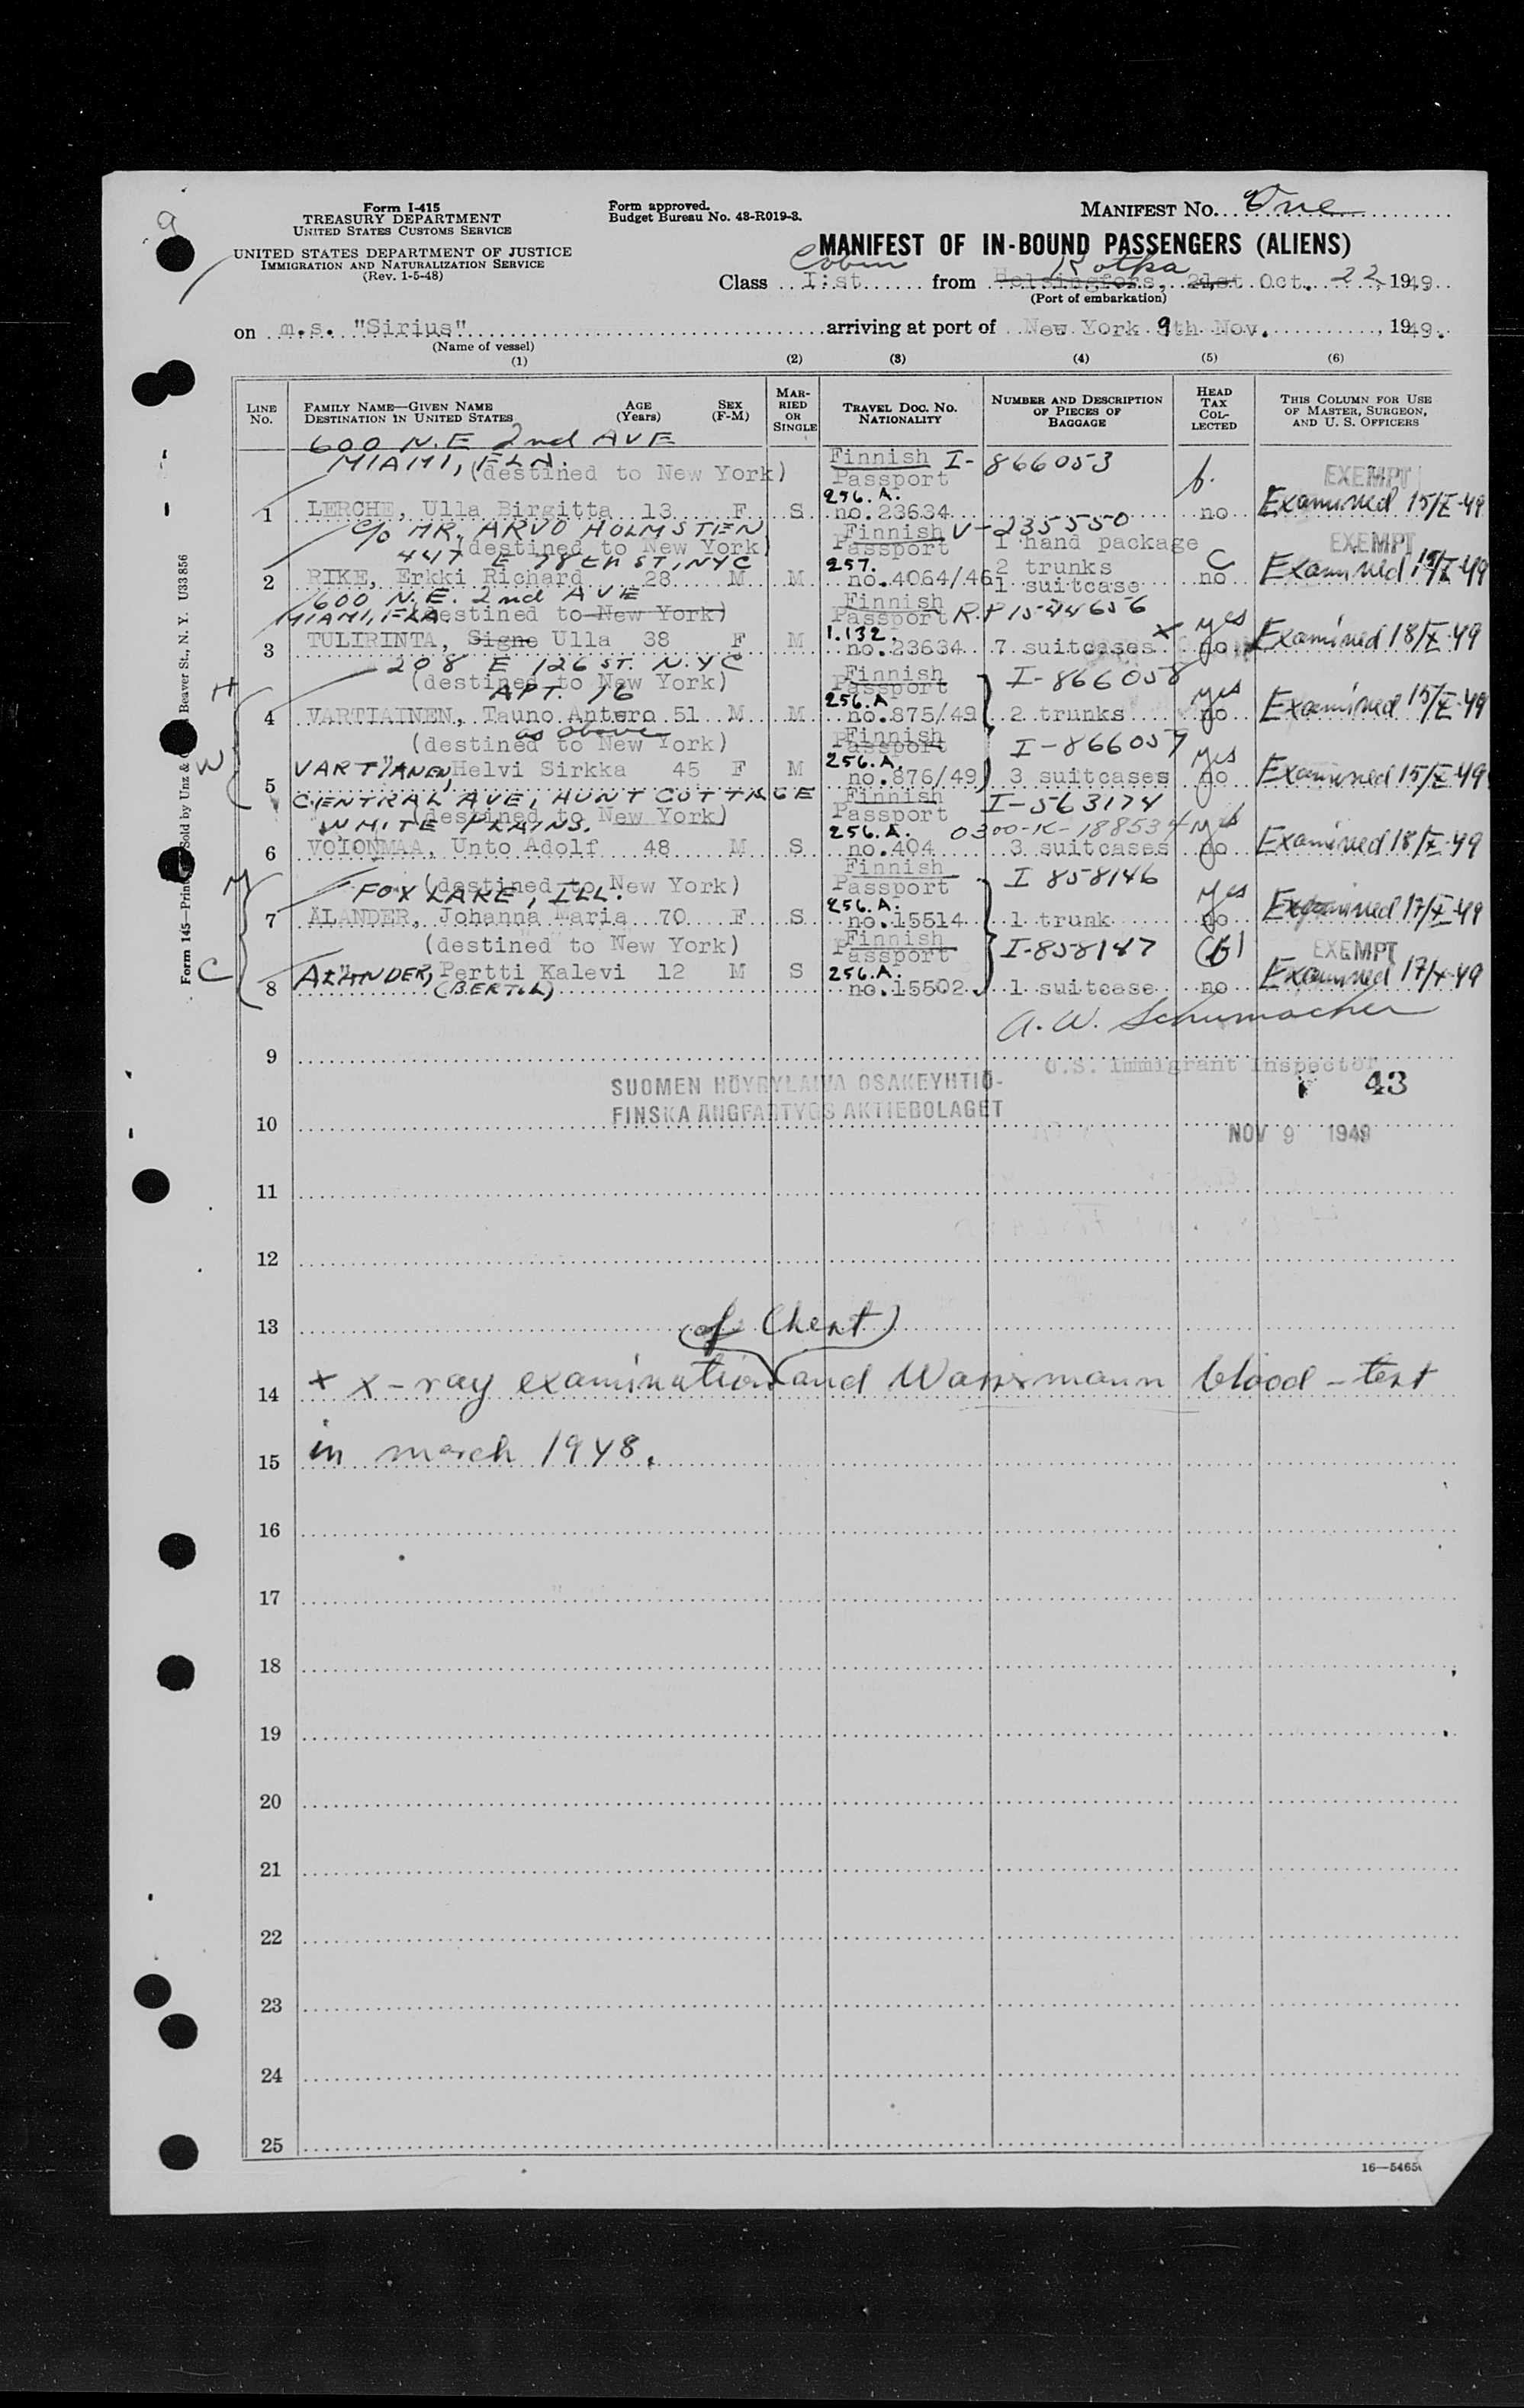 Form I-415
TREASURY DEPARTMENT
UNITED STATES CUSTOMS SERVICE
UNITED STATES DEPARTMENT OF JUSTICE
IMMIGRATION AND NATURALIZATION SERVICE
(Rev. 1-5-48)
Form approved.
Budget Bureau No. 43-R019-3.
MANIFEST NO. One
MANIFEST OF IN-BOUND PASSENGERS (ALIENS)
Cabin Kotka
Class I:st from Helsingfors, 21st Oct. 22, 1949
(Port of embarkation)
on m.s. "Sirius" arriving at port of New York 9th Nov., 1949.
(Name of vessel)
(1) (2) (3) (4) (5) (6)
LINE NO. FAMILY NAME—GIVEN NAME DESTINATION IN UNITED STATES AGE (Years) SEX (F-M) MARRIED OR SINGLE TRAVEL DOC. NO. NATIONALITY NUMBER AND DESCRIPTION OF PIECES OF BAGGAGE HEAD TAX COLLECTED THIS COLUMN FOR USE OF MASTER, SURGEON, AND U. S. OFFICERS
600 N.E 2nd AVE
MIAMI, FLA. (destined to New York) Finnish Passport I-866053 EXEMPT
256.A.
1 LERCHE, Ulla Birgitta 13 F S no.23634 no Examined 15/X-49
c/o MR. ARVO HOLMSTEN Finnish V-235550
(destined to New York) Passport 1 hand package EXEMPT
447 E 78th ST, NYC 257. 2 trunks C
2 RIKE, Erkki Richard 28 M M no.4064/46 1 suitcase no Examined 15/X-49
600 N.E. 2nd AVE Finnish
MIAMI, FLA (destined to New York) Passport R.P 1544656 yes
1.132.
3 TULIRINTA, Signe Ulla 38 F M no.23634 7 suitcases x no Examined 18/X-49
208 E 126 ST. N.Y C Finnish
(destined to New York) Passport I-866058 yes
APT 16 256.A
4 VARTIAINEN, Tauno Antero 51 M M no.875/49 2 trunks no Examined 15/X-49
as above Finnish
(destined to New York) Passport I-866057 yes
256.A.
5 VARTIANEN, Helvi Sirkka 45 F M no.876/49 3 suitcases no Examined 15/X-49
CENTRAL AVE, HUNT COTTAGE Finnish I-563174
(destined to New York) Passport
WHITE PLAINS. 256.A. 0300-K-188534 yes
6 VOIONMAA, Unto Adolf 48 M S no.404 3 suitcases no Examined 18/X-49
(destined to New York) Finnish Passport I 858146 yes
FOX LAKE, ILL. 256.A.
7 ÅLANDER, Johanna Maria 70 F S no.15514 1 trunk no Examined 17/X-49
(destined to New York) Finnish Passport I-858147 EXEMPT
256.A.
8 ALANDER, Pertti Kalevi 12 M S no.15502 1 suitcase no Examined 17/X-49
(BERTIL)
H
W
M
C
A. W. Schumacher
9 U.S. Immigrant Inspector
SUOMEN HÖYRYLAIVA OSAKEYHTIÖ- 43
FINSKA ÅNGFARTYGS AKTIEBOLAGET
10 NOV 9 1949
11
12
13 (of Chest)
14 + x-ray examination and Wassermann blood-test
15 in march 1948.
16
17
18
19
20
21
22
23
24
25
Beaver St., N. Y. U333656